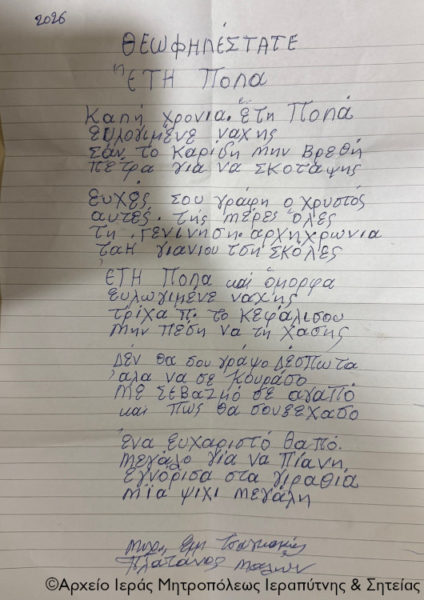 2026
ΘΕΩΦΗΛΕΣΤΑΤΕ
ΕΤΗ ΠΟΛΑ
Καλή χρονια έτη Πολά
Ευλογιμένε νάχης
Σάν το Καρίδη μην Βρεθή
Πέτρα για να Σκοτάψης
Ευχές σου γράφη ο χρυστός
αυτές της μέρες όλες
τη Γενίνηση αρχηχρωνια
τση σκόλες
ΕΤΗ Πολα και όμορφα
ευλωγιμένε νάχης
τρίχα π. το Κεφάλισου
μην πέση να τη χάσης
Δέν θα σου γράψο Δέσπωτα
άλα να σέ Κουράσο
ΜΕ Σεβασμό σε αγαπό
και πώς θα σουξεχάσο
ένα ευχαριστό θαπό.
μεγάλο για να Πιάνη
Εγνόρισα στα γιραθιά
μία ψιχι μεγάλη
Πλατάνος
©Αρχείο Ιεράς Μητροπόλεως Ιεραπύτνης & Σητείας